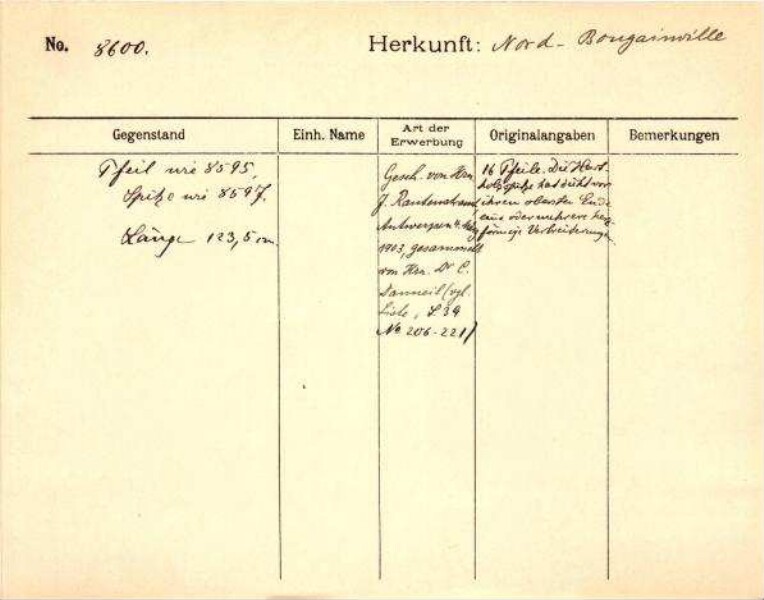 No. 8600.
Herkunft: Nord-Bougainville
Gegenstand
Einh. Name
Art der Erwerbung
Originalangaben
Bemerkungen
Pfeil wie 8595,
Spitze wie 8597.
Länge 123,5 cm
Gesch. von Hrn
J. Rautenstrauch,
Antwerpen 4.
1903, gesammelt
von Hrn. Dr C.
Danneil (vgl.
Liste, S 39
No 206-221)
16 Pfeile. Die Hart-
holzspitze hat dicht vor
ihrem obersten Ende
eine oder mehrere
förmige Verbreiterungen.